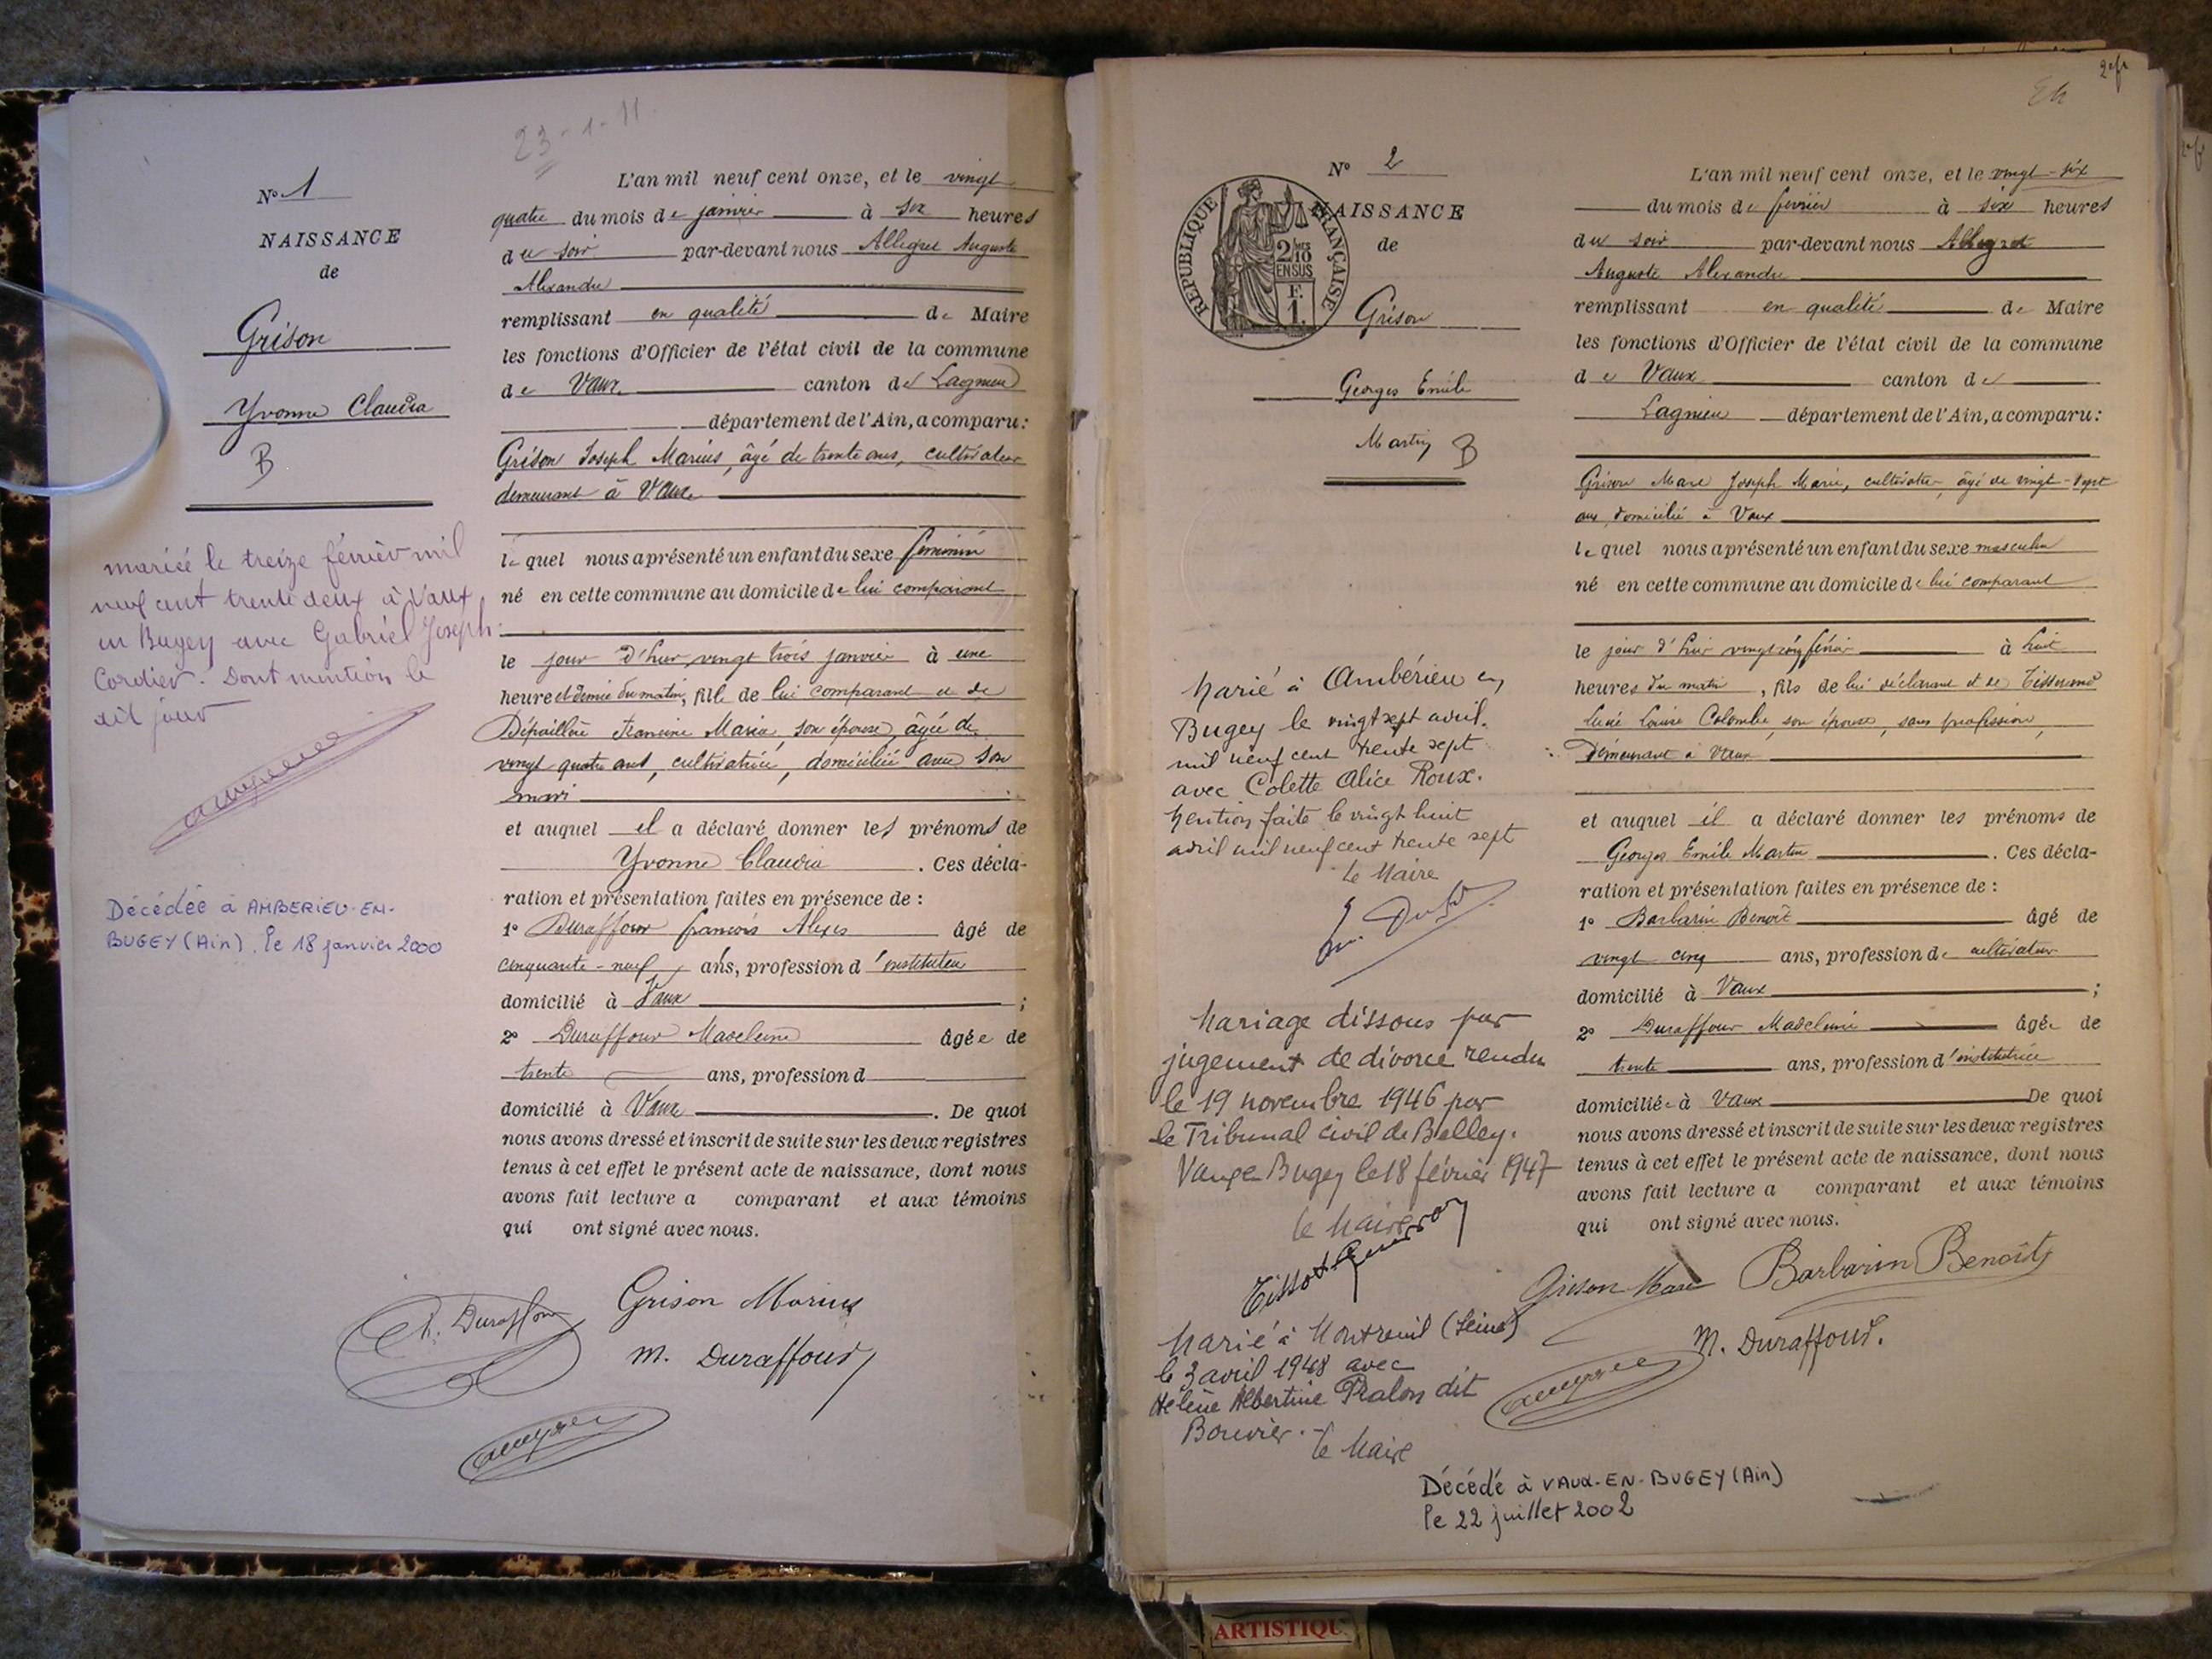 23-1-11
N° 1
NAISSANCE
de
Grison
Yvonne Claudia
B
mariée le treize février mil
neuf cent trente deux à Vaux
en Bugey avec Gabriel Joseph
Cordier. Dont mention le
dit jour
Décédée à AMBERIEU-EN-
BUGEY (Ain). le 18 janvier 2000
L'an mil neuf cent onze, et le vingt
quatre du mois de janvier à six heures
du soir par-devant nous Allegret Auguste
Alexandre
remplissant en qualité de Maire
les fonctions d'Officier de l'état civil de la commune
de Vaux canton de Lagnieu
département de l'Ain, a comparu:
Grison Joseph Marius, âgé de trente ans, cultivateur
demeurant à Vaux
lequel nous a présenté un enfant du sexe féminin
né en cette commune au domicile de lui comparant
le jour d'hier vingt trois janvier à une
heure et demie du matin, fille de lui comparant et de
Francine Maria, son épouse âgée de
vingt quatre ans, cultivatrice, domiciliée avec son
mari
et auquel il a déclaré donner les prénoms de
Yvonne Claudia. Ces décla-
ration et présentation faites en présence de:
1° Duraffour françois Alexis âgé de
cinquante-neuf ans, profession d'instituteur
domicilié à Vaux;
2° Duraffour Madeleine âgée de
trente ans, profession d
domicilié à Vaux. De quoi
nous avons dressé et inscrit de suite sur les deux registres
tenus à cet effet le présent acte de naissance, dont nous
avons fait lecture a comparant et aux témoins
qui ont signé avec nous.
Duraffour Grison Marius
M. Duraffour
2e fr
N° 2
REPUBLIQUE FRANÇAISE
2/10
EN SUS
F.
1.
NAISSANCE
de
Grison
Georges Emile
Martin B
Marié à Ambérieu en
Bugey le vingt sept avril
mil neuf cent trente sept
avec Colette Alice Roux.
Mention faite le vingt huit
avril mil neuf cent trente sept
Le Maire
Mariage dissous par
jugement de divorce rendu
le 19 novembre 1946 par
le Tribunal civil de Belley.
Vaux en Bugey le 18 février 1947
le Maire
Marié à Montreuil (Seine)
le 3 avril 1948 avec
Hélène Albertine Pralon dit
Bouvier.
le Maire
Décédé à VAUX-EN-BUGEY (Ain)
le 22 juillet 2002
L'an mil neuf cent onze, et le vingt-six
du mois de février à six heures
du soir par-devant nous Allegret
Auguste Alexandre
remplissant en qualité de Maire
les fonctions d'Officier de l'état civil de la commune
de Vaux canton de
Lagnieu département de l'Ain, a comparu:
Grison Marc Joseph Marie, cultivateur, âgé de vingt-sept
ans, domicilié à Vaux
lequel nous a présenté un enfant du sexe masculin
né en cette commune au domicile de lui comparant
le jour d'hier vingt cinq février à huit
heures du matin, fils de lui déclarant et de
Louise Colombe, son épouse, sans profession,
demeurant à Vaux
et auquel il a déclaré donner les prénoms de
Georges Emile Martin. Ces décla-
ration et présentation faites en présence de:
1° Barbarin Benoît âgé de
vingt cinq ans, profession de cultivateur
domicilié à Vaux;
2° Duraffour Madeleine âgée de
trente ans, profession d'institutrice
domiciliée à Vaux De quoi
nous avons dressé et inscrit de suite sur les deux registres
tenus à cet effet le présent acte de naissance, dont nous
avons fait lecture a comparant et aux témoins
qui ont signé avec nous.
Grison Marc Barbarin Benoît
M. Duraffour.
ARTISTIQU